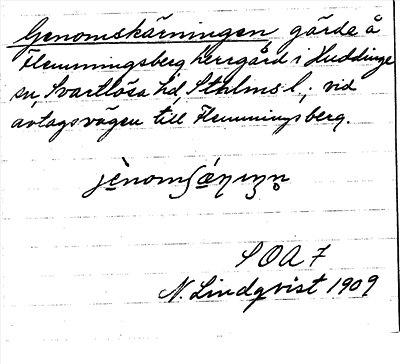 Genomskärningen gärde å
Flemmingsberg herrgård i Huddinge
sn, Svartlösa hd, Sthlms l., vid
avtagsvägen till Flemmingsberg.
SOA 7
N. Lindqvist 1909